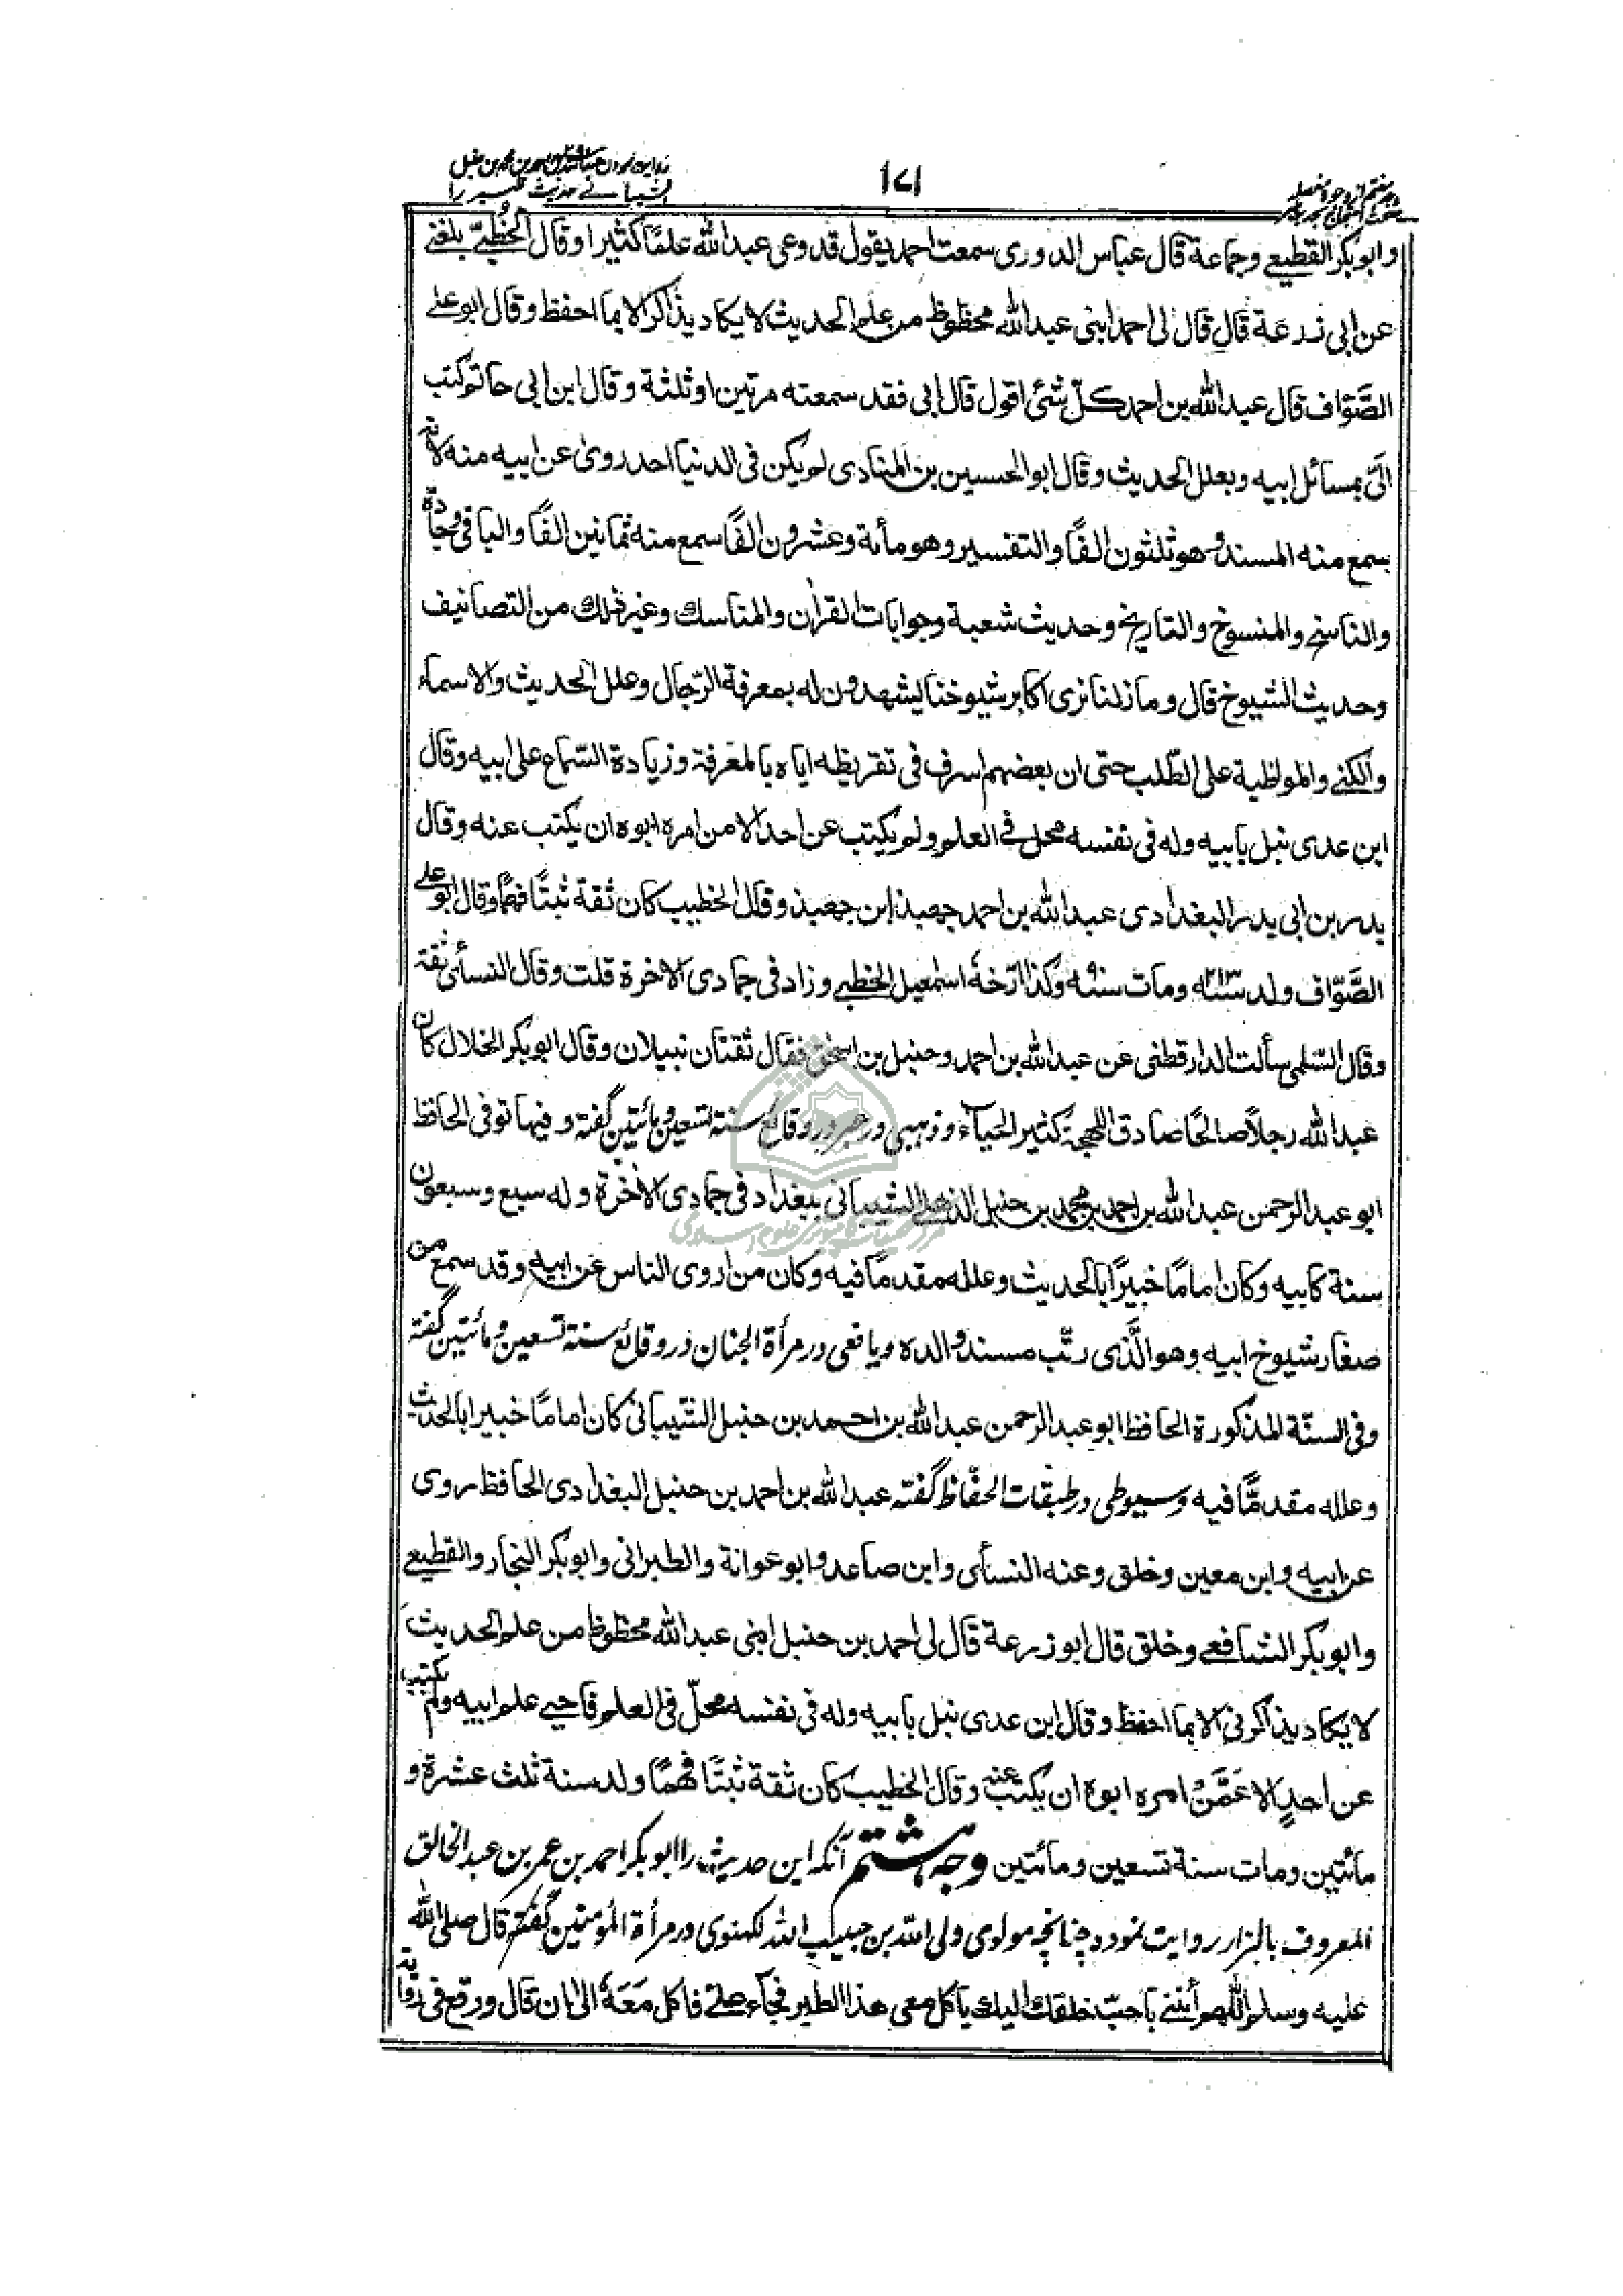 روایت نمودن عبدالله بن احمد بن محمد بن حنبل
الشیبانے حدیث طیر را
۱۷۱
وابوبکر القطیعے وجماعة قال عباس الدوری سمعت احمد یقول قد وعی عبد الله علمًا کثیرا وقال الخُطَبیّ بلغنے
عن ابی زرعة قال قال لی احمد ابنی عبد الله محظوظ من علم الحدیث لا یکاد یذاکر الا بما احفظ وقال ابو علے
الصَّوّاف قال عبد الله بن احمد کلّ شئ اقول قال ابی فقد سمعته مرتین او ثلثة وقال ابن ابی حاتم کتب
الیّ بمسائل ابیه وبعلل الحدیث وقال ابو الحسین بن المنادی لم یکن فی الدنیا احد رویٰ عن ابیه منه لانه
سمع منه المسند وهو ثلثون الفًا والتفسیر وهو مأیة وعشرون الفًا سمع منه ثمانین الفًا والباقی وجادة
والناسخ والمنسوخ والتاریخ وحدیث شعبة وجوابات القرٰان والمناسك وغیر ذلك من التصانیف
وحدیث الشیوخ قال وما زلنا نری اکابر شیوخنا یشهدون له بمعرفة الرّجال وعلل الحدیث والاسماء
والکنٰے والمواظبة علی الطّلب حتی ان بعضهم اسرف فی تقریظه ایاه بالمعرفة وزیادة السّماع علی ابیه وقال
ابن عدی نبل بابیه وله فی نفسه محل فی العلم ولم یکتب عن احد الا من امره ابوه ان یکتب عنه وقال
بدر بن ابی بدر البغدادی عبد الله بن احمد جهبذ ابن جهبذ وقال الخطیب کان ثقة ثبتًا فهمًا وقال ابو علے
الصَّوّاف ولد سنة ۲۱۳ ومات سنة ۹۰ وکذا ارّخهٗ اسمٰعیل الخطبے وزاد فی جمادی الاخرة قلت وقال النسأئی ثقة
وقال السّلمی سألت الدارقطنی عن عبد الله بن احمد وحنبل بن اسحٰق فقال ثقتان نبیلان وقال ابوبکر الخلال کان
عبد الله رجلاً صالحًا صادق اللهجة کثیر الحیاء وذهبی در عبر در وقائع سنة تسعین ومائتین گفته وفیها توفی الحافظ
ابو عبد الرحمن عبد الله بن احمد بن محمد بن حنبل الذهلی الشیبانی ببغداد فی جمادی الاٰخرة وله سبع وسبعون
سنة کابیه وکان امامًا خبیرًا بالحدیث وعلله مقدمًا فیه وکان من اروی الناس عن ابیه وقد سمع من
صغار شیوخ ابیه وهو الّذی رتّب مسند والده ویافعی در مرأة الجنان در وقائع سنة تسعین ومائتین گفته
وفی السنّة المذکورة الحافظ ابو عبد الرحمن عبد الله بن احمد بن حنبل الشّیبانی کان امامًا خبیرا بالحدیث
وعلله مقدمًّا فیه وسیوطی در طبقات الحفّاظ گفته عبد الله بن احمد بن حنبل البغدادی الحافظ روی
عن ابیه وابن معین وخلق وعنه النسأئی وابن صاعد وابو عوانة والطبرانی وابوبکر النجار والقطیعے
وابوبکر الشافعے وخلق قال ابو زرعة قال لی احمد بن حنبل ابنی عبد الله محظوظ من علم الحدیث
لا یکاد یذاکرنی الا بما احفظ وقال ابن عدی نبل بابیه وله فی نفسه محلّ فی العلم فاحیے علم ابیه ولم یکتب
عن احدٍ الا عَمَّنْ امره ابوه ان یکتب عنه وقال الخطیب کان ثقة ثبتًا فهمًا ولد سنة ثلث عشرة و
مائتین ومات سنة تسعین ومائتین وجه هشتم آنکه این حدیث را ابوبکر احمد بن عمر بن عبد الخالق
المعروف بالبزار روایت نموده چنانچه مولوی ولی الله بن حبیب الله لکهنوی در مرأة المؤمنین گفته قال صلی الله
علیه وسلم اللهم أتنی باحبّ خلقك الیك یاکل معی هذا الطیر فجآء علےّ فاکل مَعَهٗ الیٰ ان قال ورقع فی روایة